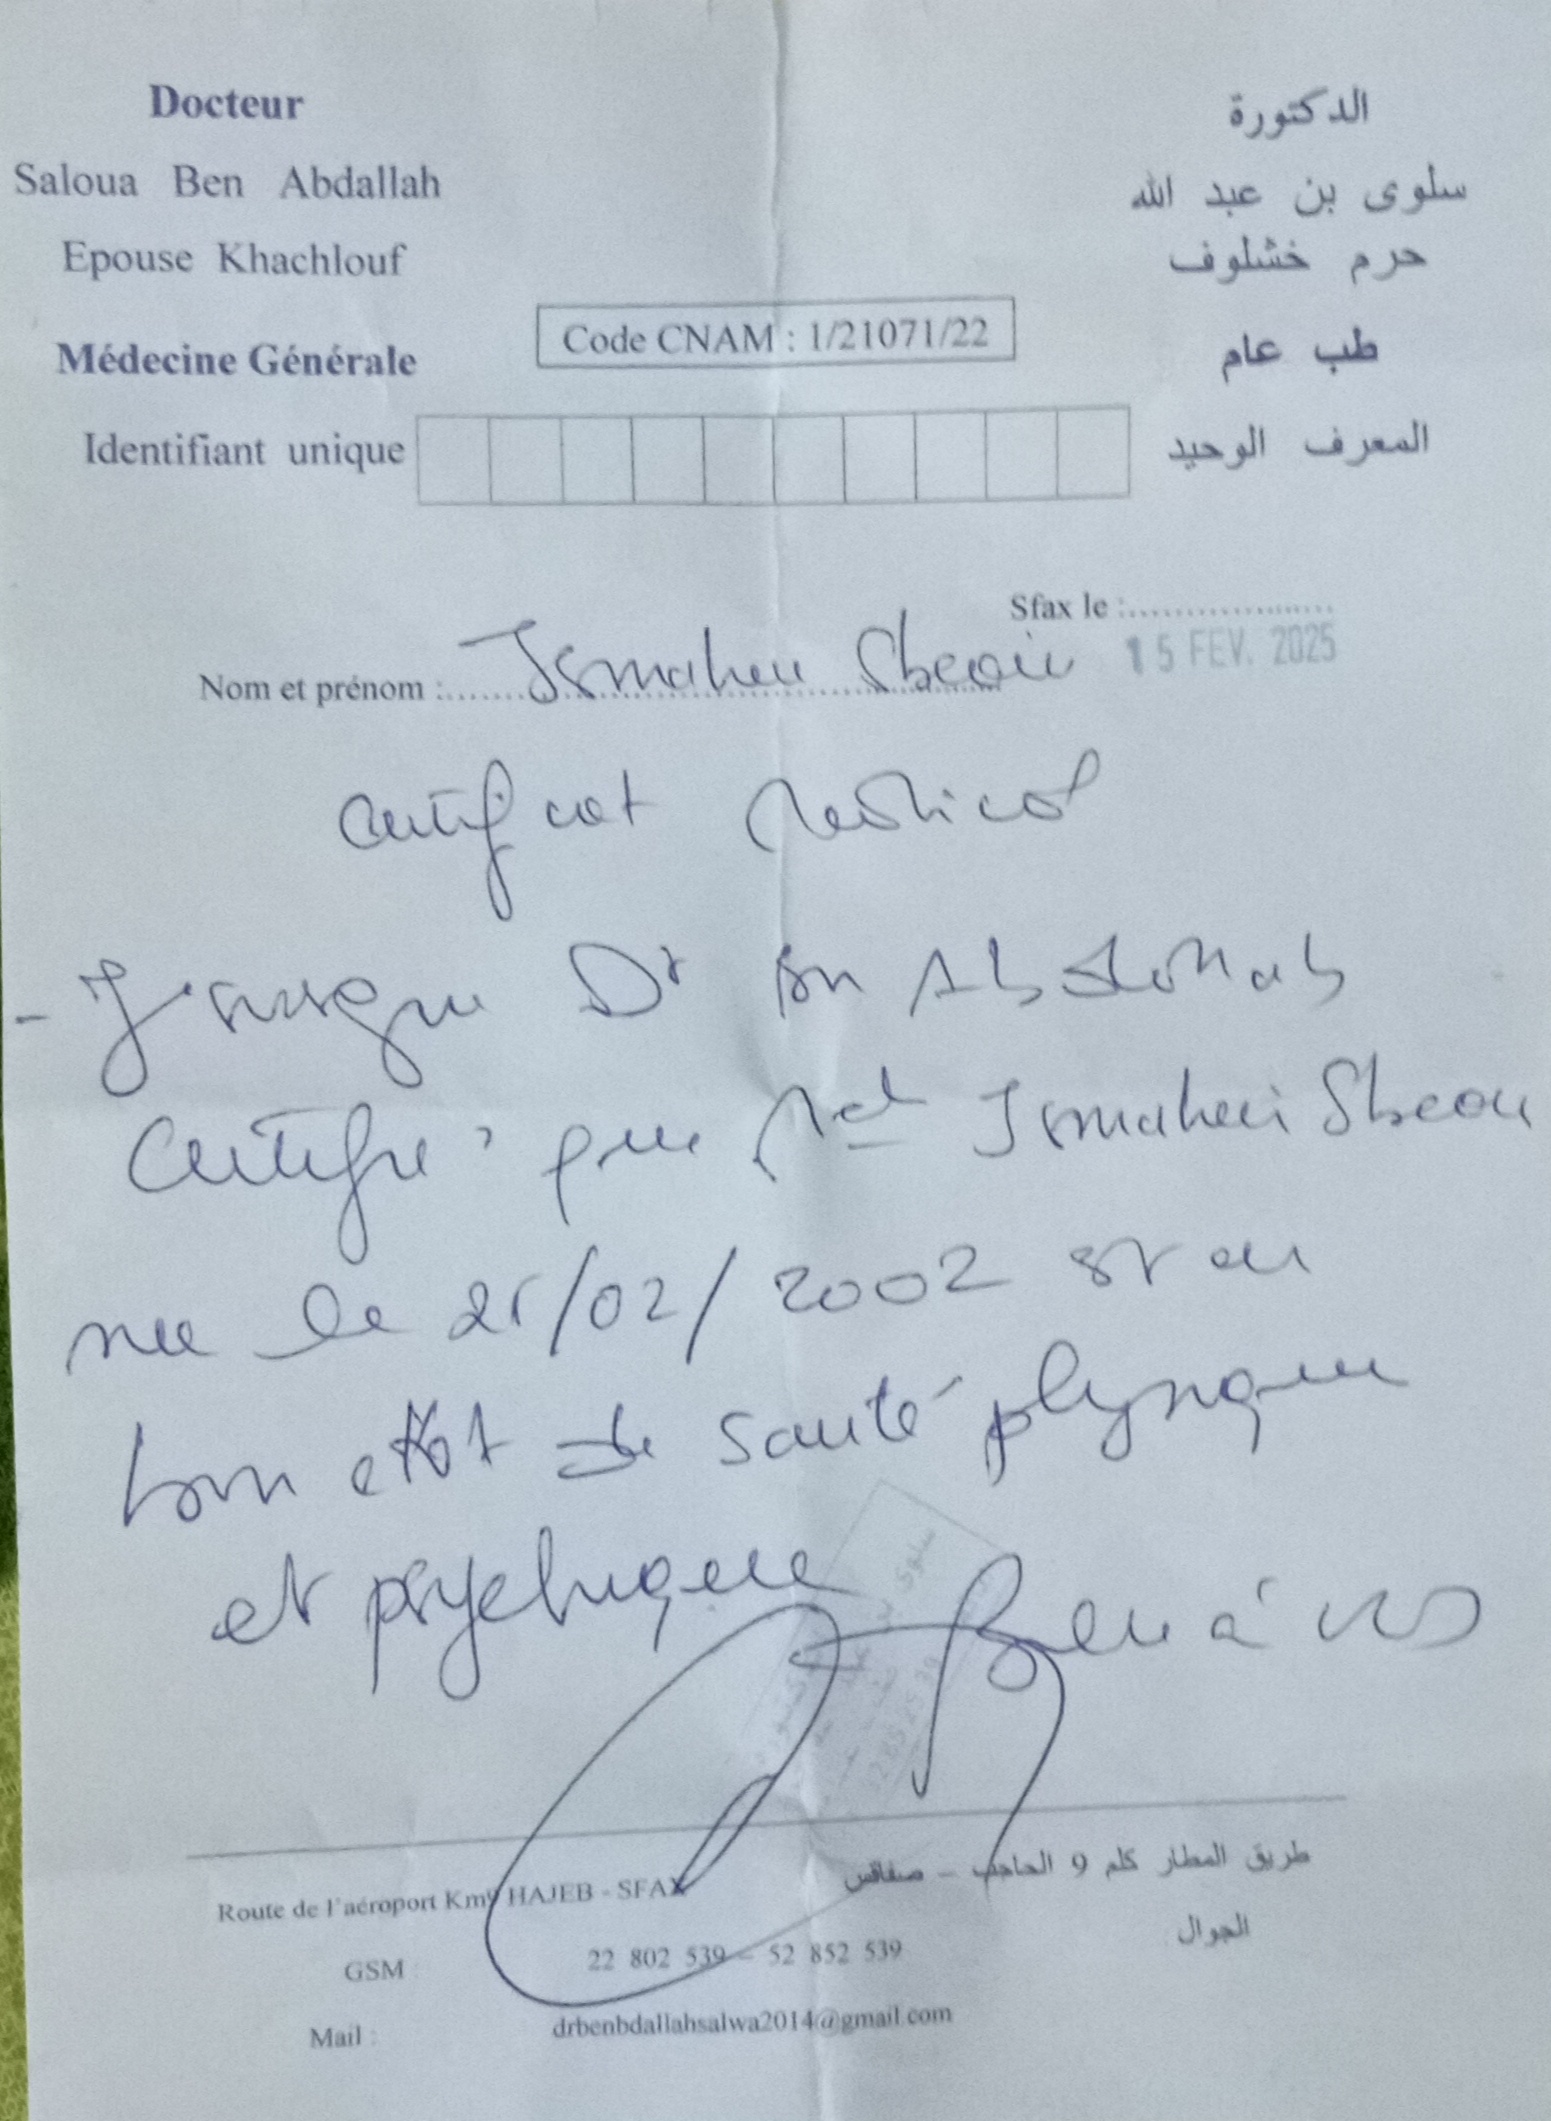 Docteur
Saloua Ben Abdallah
Epouse Khachlouf
Médecine Générale
الدكتورة
سلوى بن عبد الله
حرم خشلوف
طب عام
Code CNAM : 1/21071/22
Identifiant unique
المعرف الوحيد
Sfax le :
15 FEV. 2025
Nom et prénom : Ismahen
Certificat Médical
- Je soussigné Dr Ben Abdallah
Certifie que Ismahen
née le /02/2002 est en
bon etat de santé physique
et psychique
Route de l'aéroport Km9 HAJEB - SFAX
طريق المطار كلم 9 الحاجب - صفاقس
GSM 22 802 539 - 52 852 539
الجوال
Mail : drbenbdallahsalwa2014@gmail.com